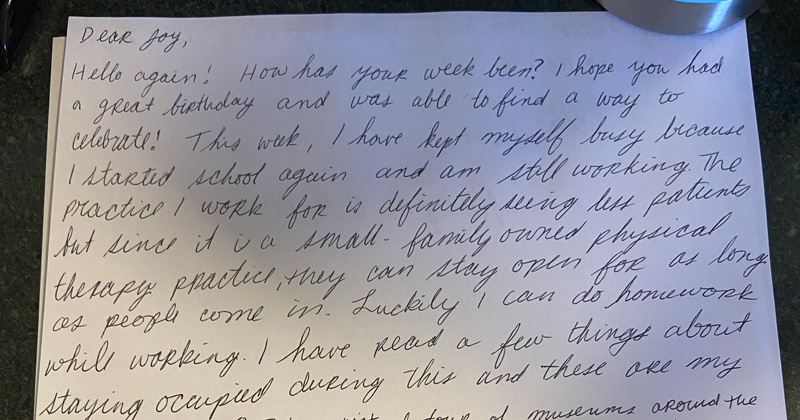 Dear Joy,
Hello again! How has your week been? I hope you had
a great birthday and was able to find a way to
celebrate! This week, I have kept myself busy because
I started school again and am still working. The
practice I work for is definitely seeing less patients
but since it is a small-family owned physical
therapy practice, they can stay open for as long
as people come in. Luckily I can do homework
while working. I have read a few things about
staying occupied during this and these are my
tour of museums around the